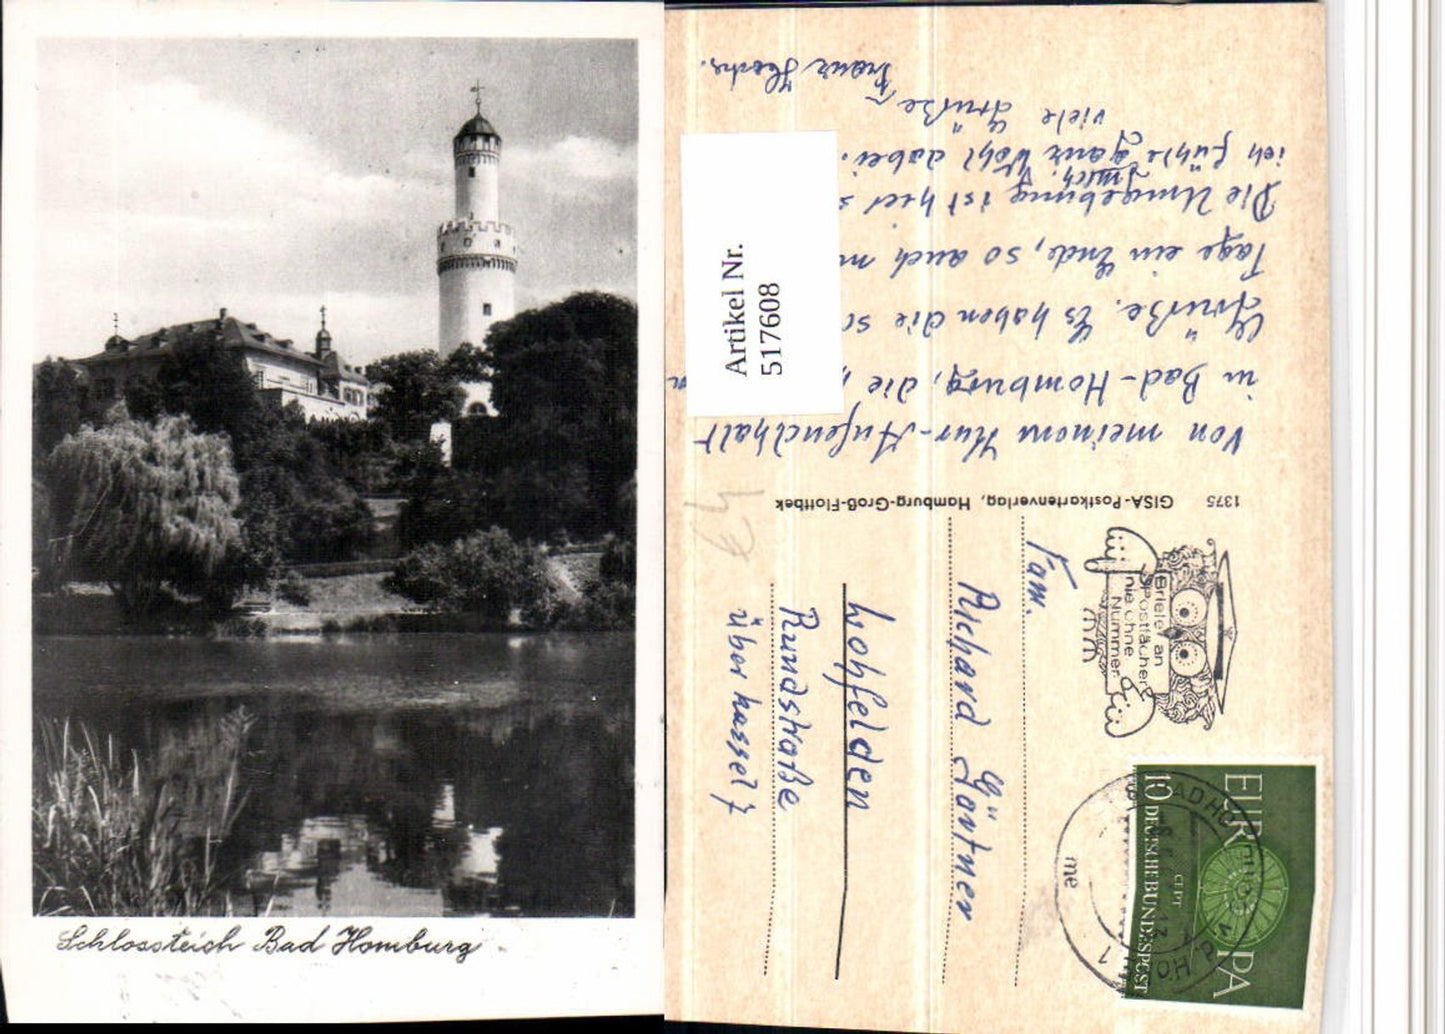 Schlossteich Bad Homburg
Artikel Nr.
517608
Von meinem Kur-Aufenthalt
in Bad-Homburg, die
Grüße. Es haben die
Tage ein Ende, so auch
Die Umgebung ist hier
mich.
ich fühle ganz Wohl dabei.
viele Grüße
Franz
1375 GISA-Postkartenverlag, Hamburg-Groß-Flottbek
Briefe an
Postfächer
nie ohne
Nummer
EUROPA
CEPT
10 DEUTSCHE BUNDESPOST
BAD HOMBURG
v d HÖH
1
me
Fam.
Richard Gärtner
Wohfelden
Rundstraße
über Kassel 7
€4